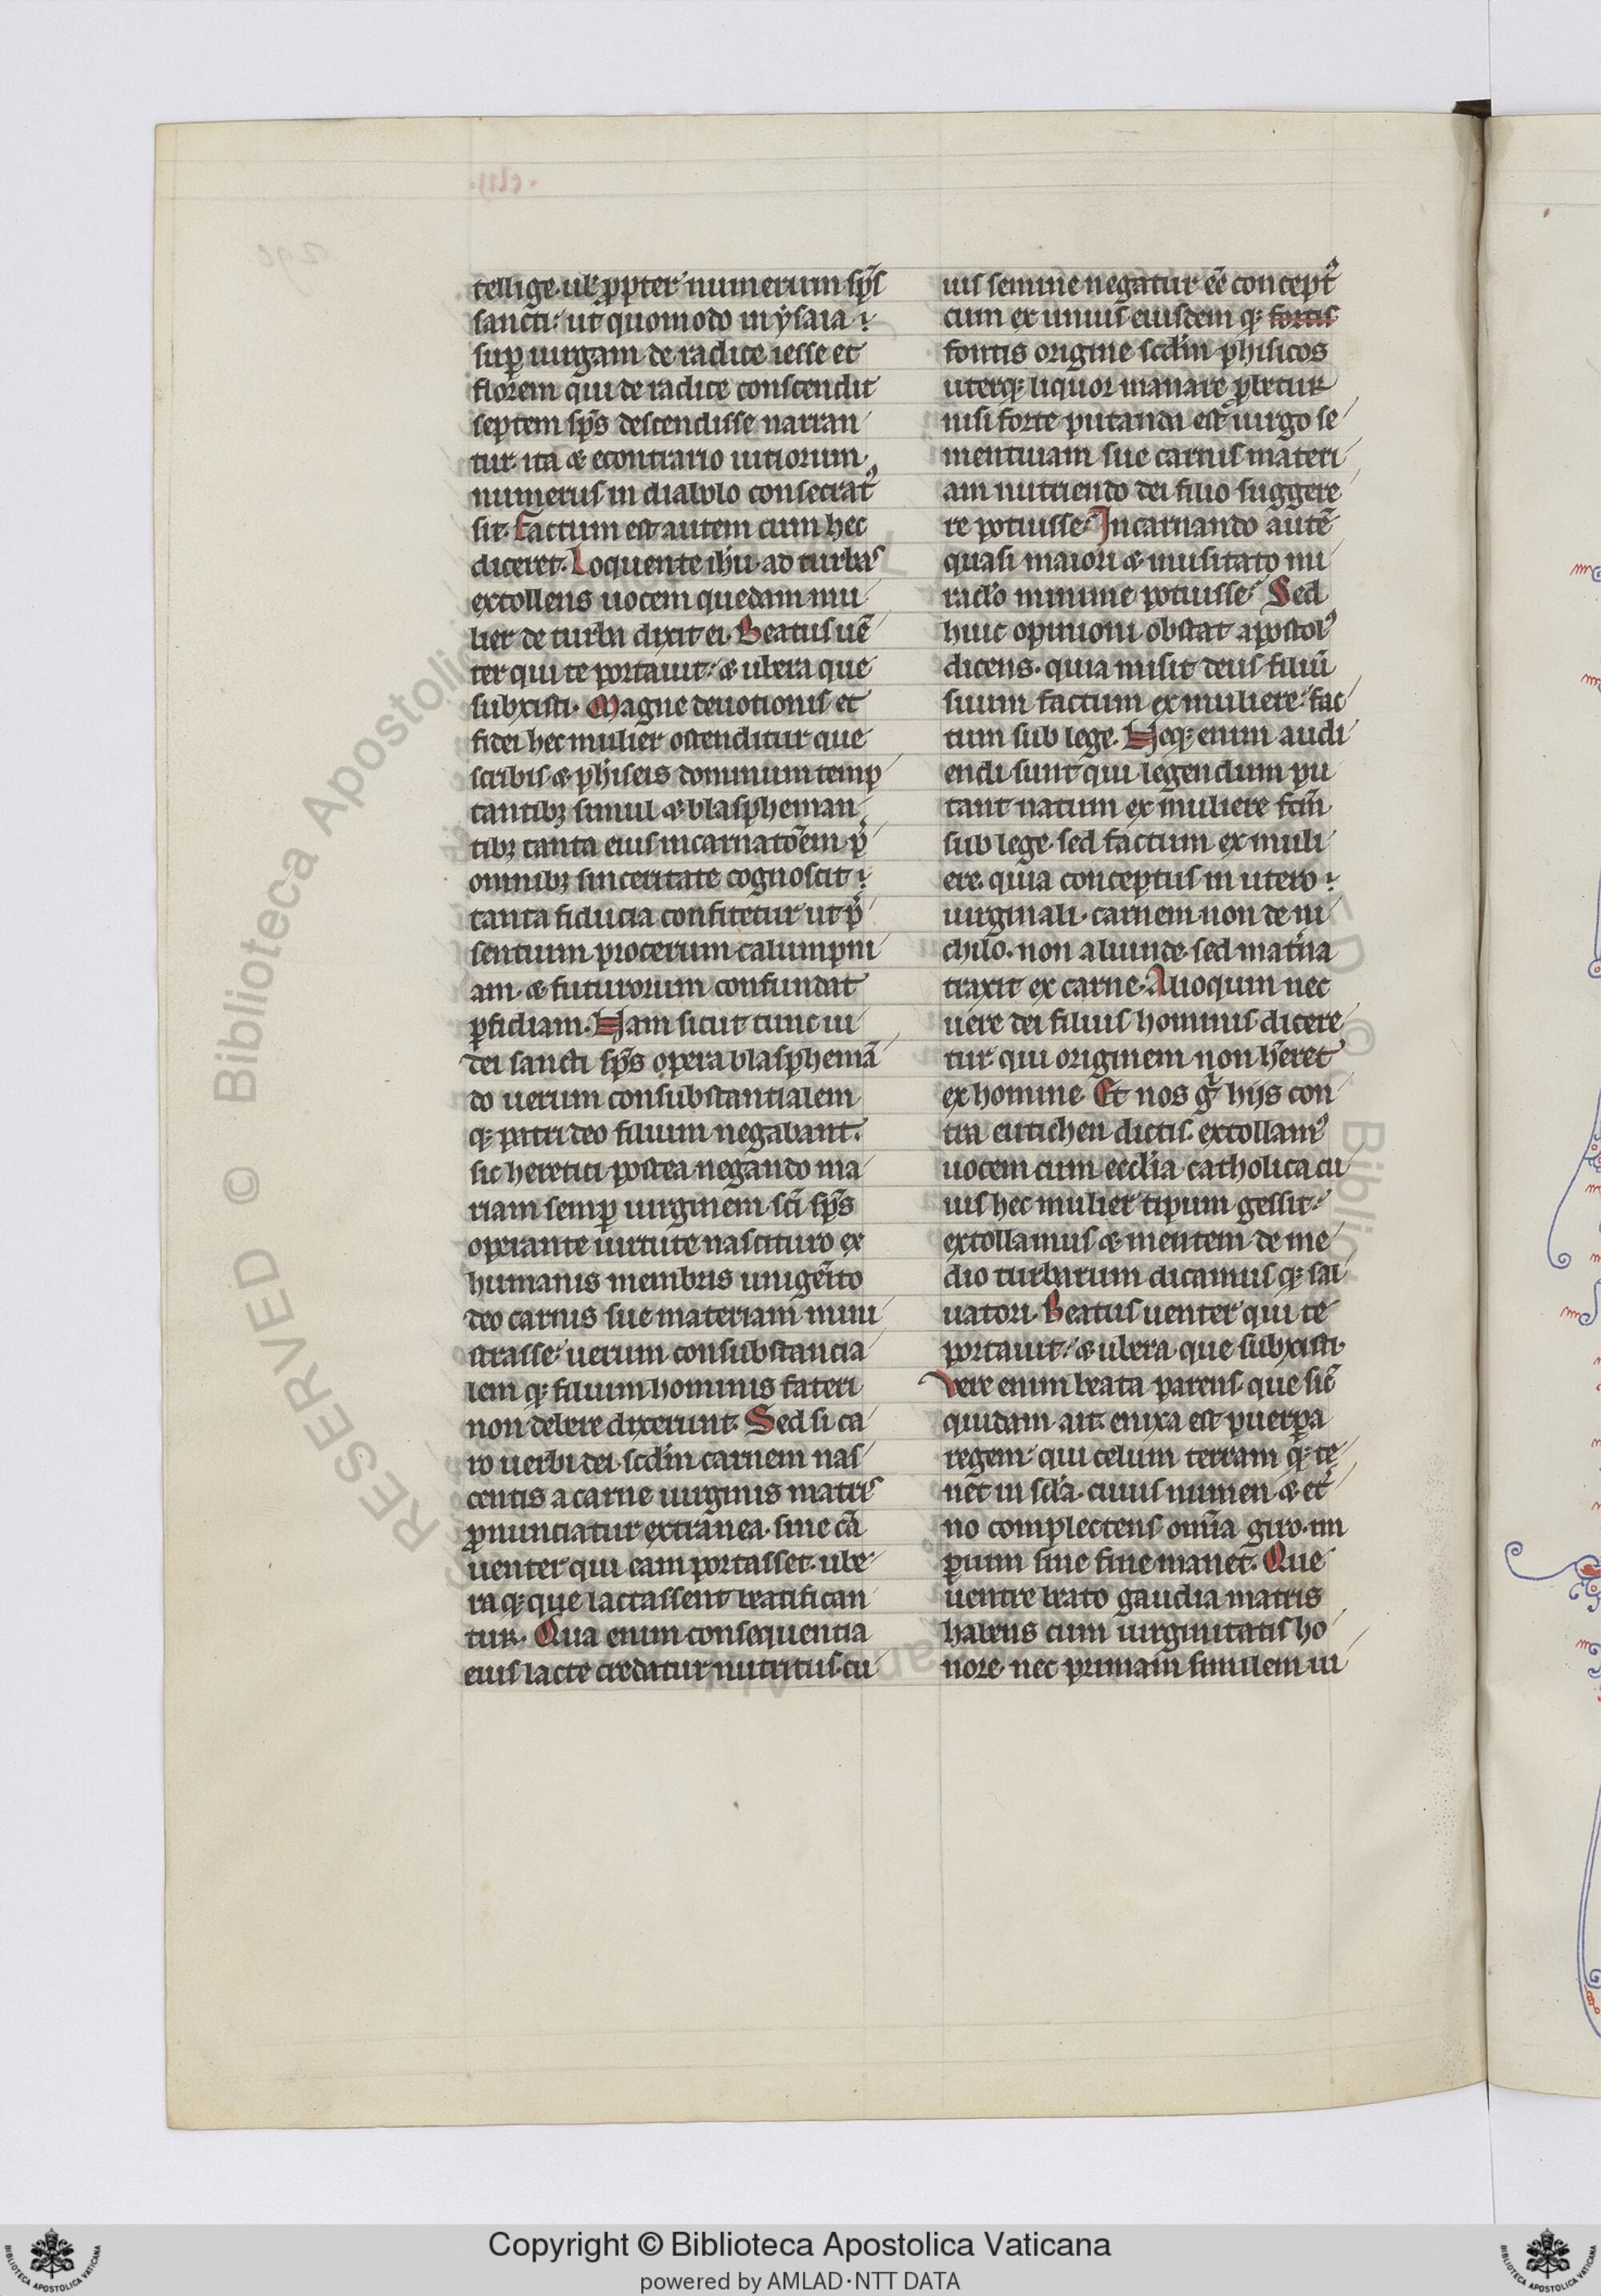 tellige. ul' ꝓpter numerum sp̄s
sancti. ut quomodo in ysaia
suꝑ uirgam de radice iesse et
florem qui de radice conscendit
septem sp̄s descendisse narran
tur. ita & econtrario uitiorum
numerus in diabolo consecrat᷒
sit. Factum est autem cum hec
diceret. Loquente ih̄u ad turbas
extollens uocem quedam mu
lier de turba dixit ei. Beatus uē
ter qui te portauit. & ubera que
subxisti. Magne deuotionis et
fidei hec mulier ostenditur que
scribis & ph'iseis dominum temp
tantibꝫ simul & blaspheman
tibꝫ tanta eius incarnatōem p̄
omnibꝫ sinceritate cognoscit
tanta fiducia confitetur ut p̄
sentium procerum calumpni
am. & futurorum confundat
ꝑfidiam. Nam sicut tunc iu
dei sancti sp̄s opera blasphemā
do uerum consubstantialem
qꝫ patri deo filium negabant.
sic heretici postea negando ma
riam semꝑ uirginem sc̄i sp̄s
operante uirtute nascituro ex
humanis membris unigēito
deo carnis sue materiam mini
strasse. uerum consubstancia
lem qꝫ filium hominis fateri
non debere dixerunt. Sed si ca
ro uerbi dei scd̄m carnem nas
centis a carne uirginis matris
ꝓnunciatur extranea. sine cā
uenter qui eam portasset. ube
ra qꝫ que lactassent beatifican
tur. Qua enim consequentia
eius lacte credatur nutritus. cu
ius semine negatur eē concept᷒
cum ex unius eiusdem qꝫ fortis
fontis origine scd̄m phisicos
uterqꝫ liquor manare ꝓbetur
nisi forte putanda est uirgo se
mentiuam sue carnis materi
am nutriendo dei filio suggere
re potuisse. Incarnando autē
quasi maiori & inusitato mi
rac̄lo minime potuisse. Sed
huic opinioni obstat apostol᷒
dicens. quia misit deus filiū
suum factum ex muliere. fac
tum sub lege. Neqꝫ enim audi
endi sunt qui legendum pu
tant natum ex muliere fc̄m
sub lege. sed factum ex muli
ere. quia conceptus in utero
uirginali. carnem non de ni
chilo. non aliunde. sed mat'na
traxit ex carne. Alioquin nec
uere dei filius hominis dicere
tur qui originem non h'eret
ex homine. Et nos gͣ hijs con
tra eutichen dictis. extollam᷒
uocem cum eccl'ia catholica cu
ius hec mulier tipum gessit.
extollamus & mentem de me
dio turbarum dicamus qꝫ sal
uatori. Beatus uenter qui te
portauit. & ubera que subxisti.
Vere enim beata parens. que sic̄
quidam ait. enixa est puerꝑa
regem. qui celum terram qꝫ te
net in sc̄l'a. cuius numen & et'
no complectens omīa giro. im
ꝑium sine fine manet. Que
uentre beato gaudia matris
habens cum uirginitatis ho
nore. nec primam similem ui
Copyright © Biblioteca Apostolica Vaticana
powered by AMLAD·NTT DATA